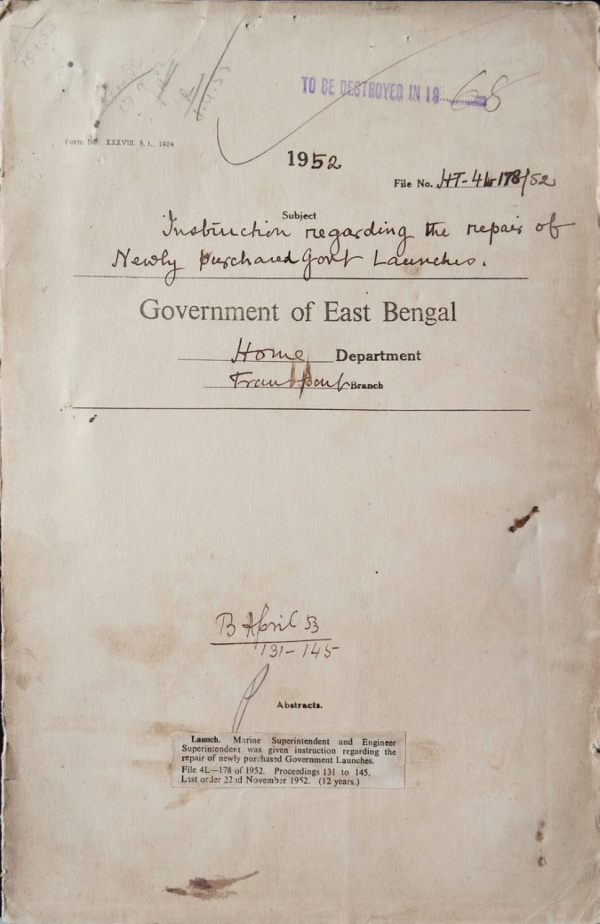 TO BE DESTROYED IN 19 68
Form No. XXXVIII, S. L., 1924
1952
File No. HT-4L-178/52
Subject
Instruction regarding the repair of
Newly purchased Govt Launches.
Government of East Bengal
Home Department
Transport Branch
B April 53
131-145
Abstracts.
Launch. Marine Superintendent and Engineer
Superintendent was given instruction regarding the
repair of newly purchased Government Launches.
File 4L—178 of 1952. Proceedings 131 to 145.
Last order 22nd November 1952. (12 years.)